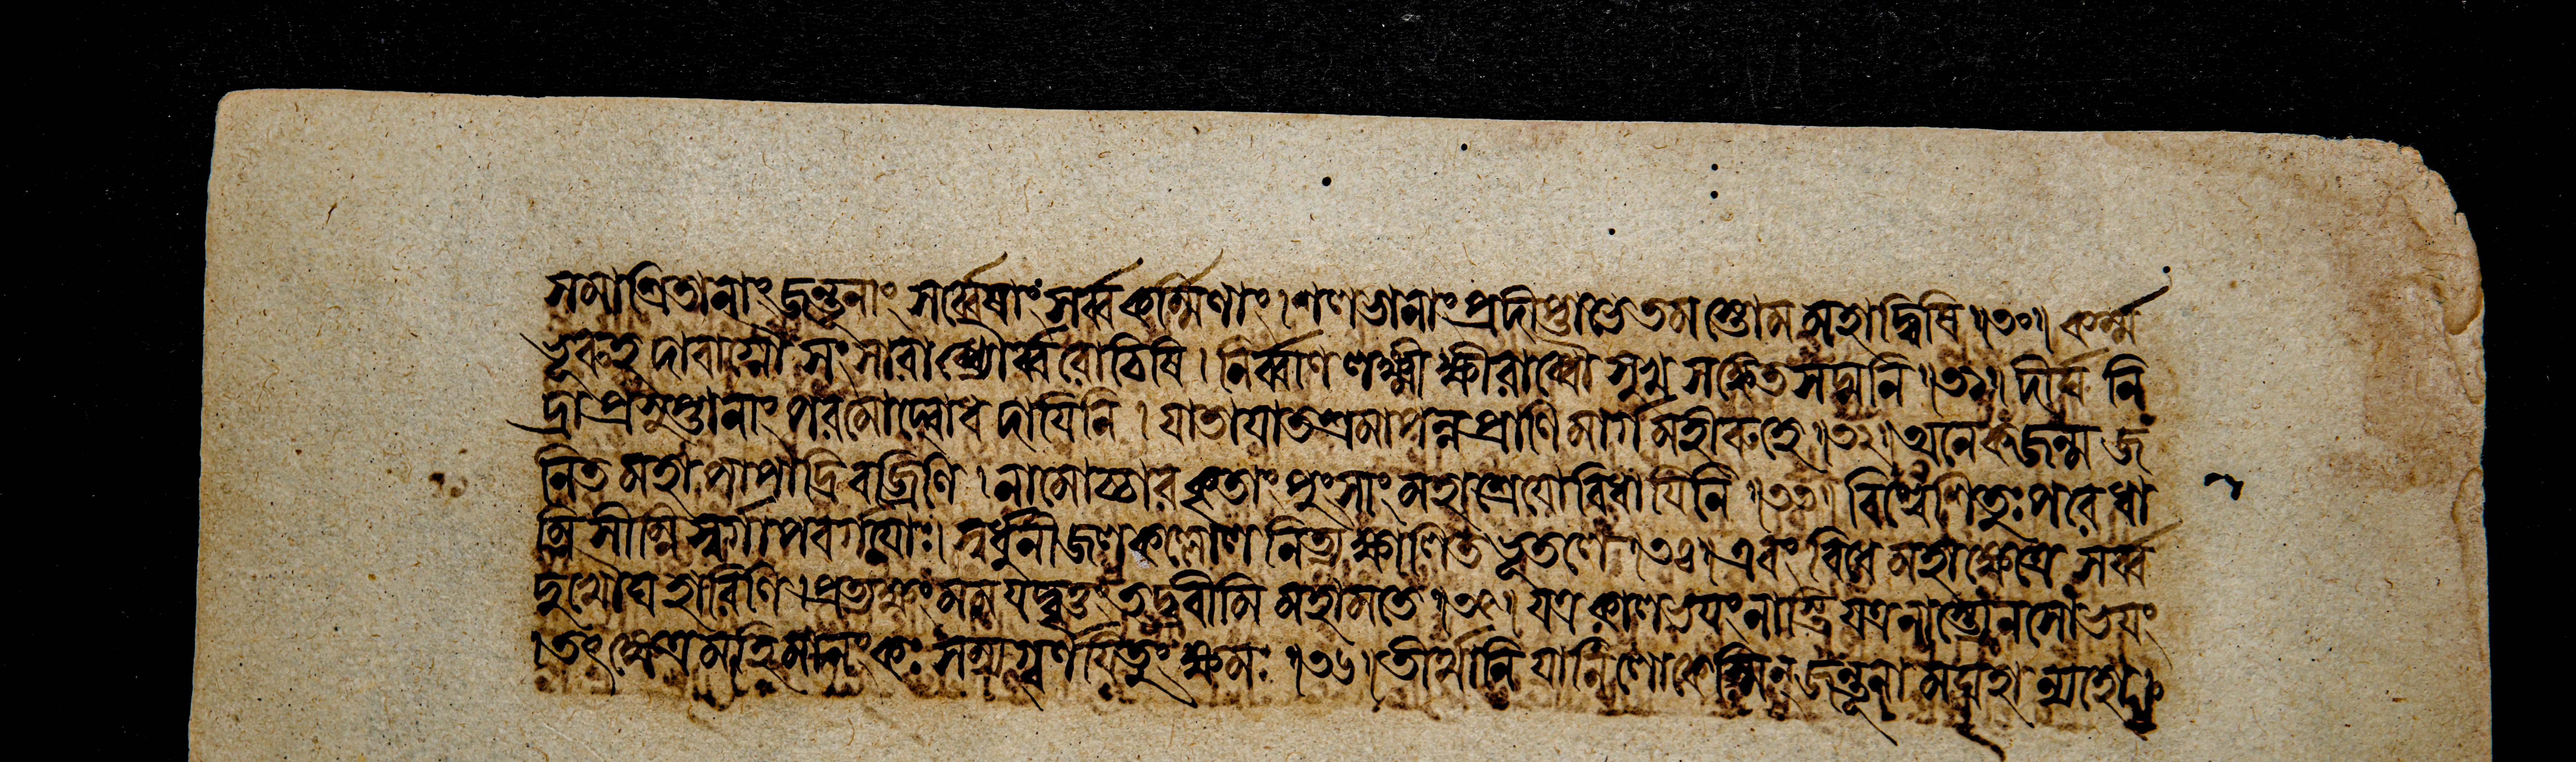 সমাশ্রিতানাং জন্তূনাং সর্ব্বেষাং সর্ব্বকর্ম্মিণাং । শলভানাং প্রদীপ্তাভে তমস্তোমমহাদ্বিষি ॥৩০॥ কর্ম্ম
ভূরুহদাবাগ্নৌ সংসারাব্ধ্যৌর্ব্বরোচিষি । নির্ব্বাণলক্ষ্মীক্ষীরাব্ধৌ সুখসঙ্কেতসদ্মনি ॥৩১॥ দীর্ঘনি
দ্রাপ্রসুপ্তানাং পরমোদ্বোধদায়িনি । যাতায়াতশ্রমাপন্নপ্রাণিমার্গমহীরুহে ॥৩২॥ অনেকজন্মজ
নিতমহাপাপাদ্রিবজ্রিণি । নামোচ্চারকৃতাং পুংসাং মহাশ্রেয়োবিধায়িনি ॥৩৩॥ বিশ্বেশিতুঃ পরে ধা
ম্নি সীম্নি স্বর্গাপবর্গয়োঃ । স্বর্ধুনীজলকল্লোলনিত্যক্ষালিতভূতলে ॥৩৪॥ এবংবিধে মহাক্ষেত্রে সর্ব্ব
দুঃখৌঘহারিণি । প্রত্যক্ষং মম যদ্বৃত্তং তদ্ব্রবীমি মহামতে ॥৩৫॥ যত্র কালভয়ং নাস্তি যত্র নাস্ত্যেনসো ভয়ং
। তৎক্ষেত্রমহিমানং কঃ সম্যগ্বর্ণয়িতুং ক্ষমঃ ॥৩৬॥ তীর্থানি যানি লোকেঽস্মিন্ জন্তূনামঘহান্যহো